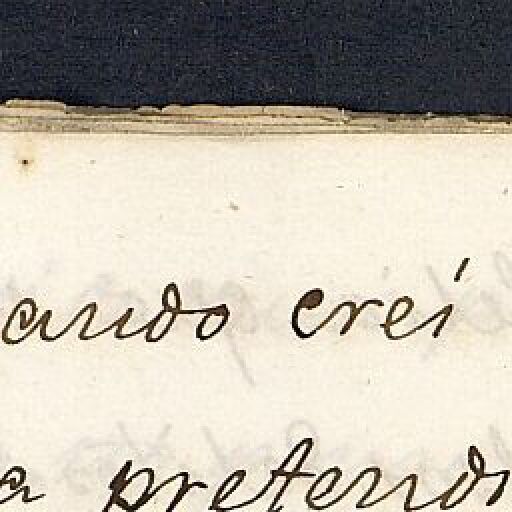 ando creí
a pretend